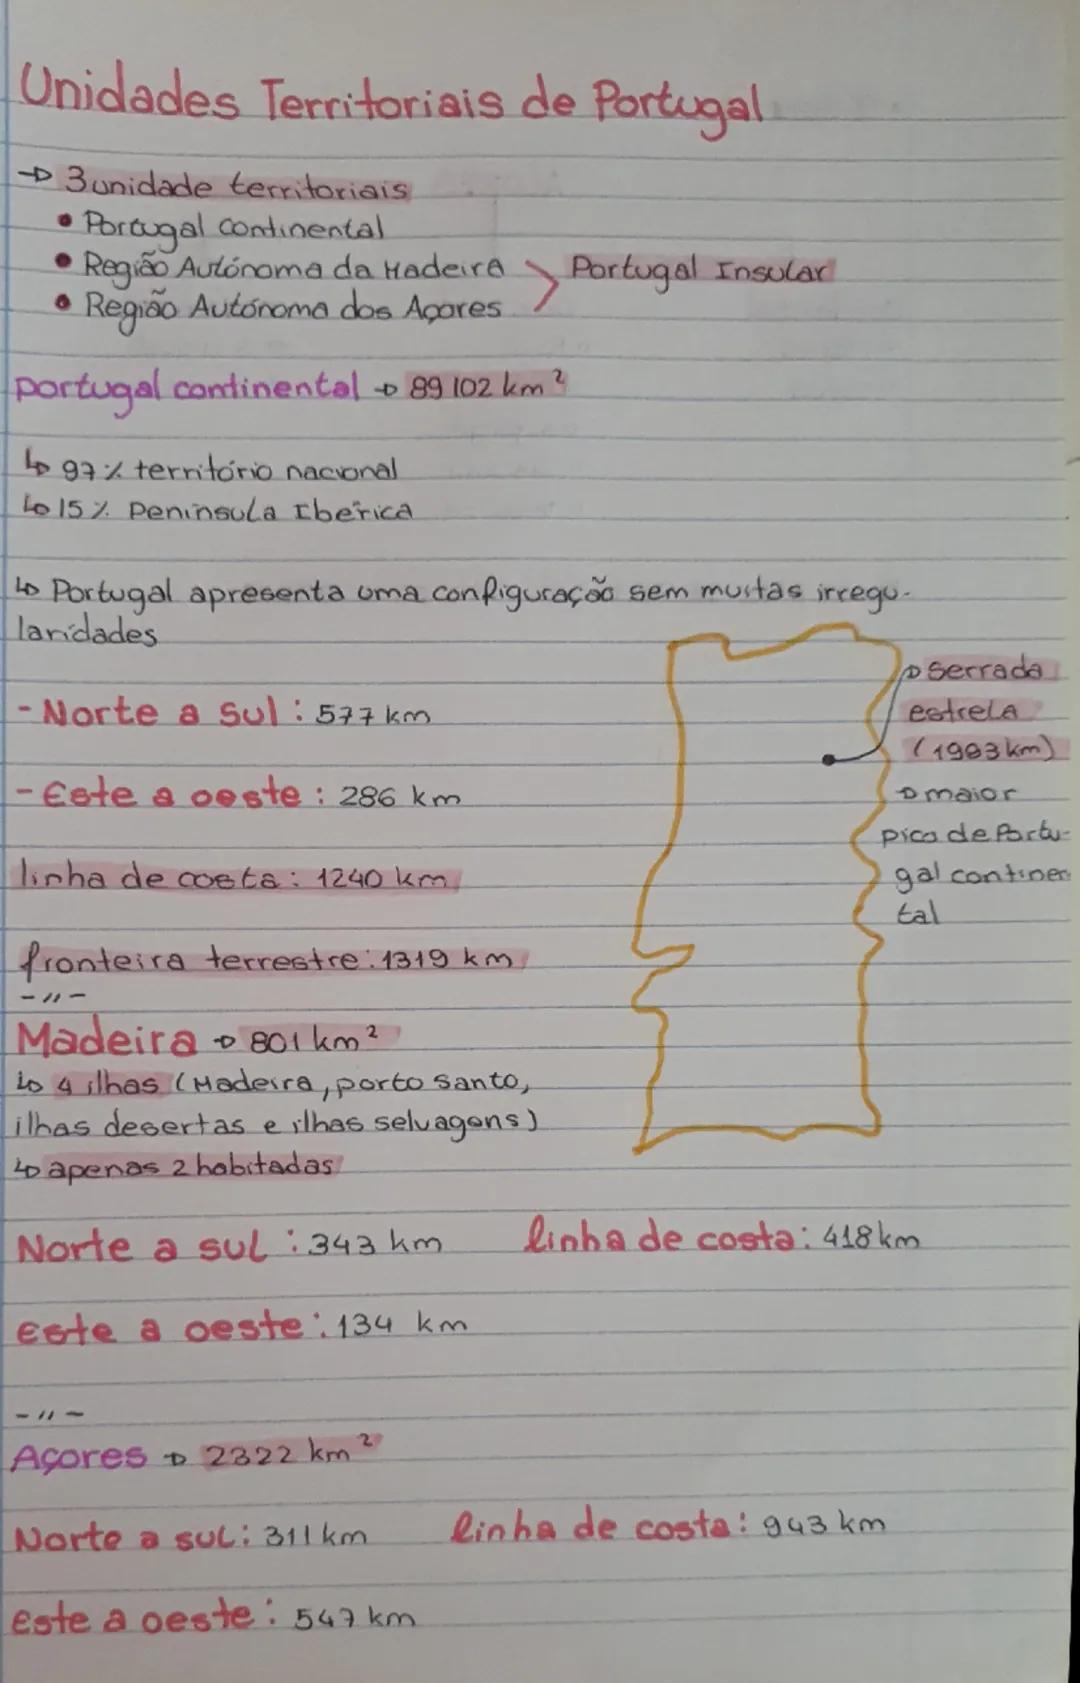 Unidades Territoriais de Portugal
→ 3 unidade territoriais
• Portugal continental
• Região Autónoma da Madeira > Portugal Insular
• Região Autónoma dos Açores
portugal continental → 89 102 km²
↳ 97% território nacional
↳ 15% Península Ibérica
↳ Portugal apresenta uma configuração sem muitas irregu-
laridades
- Norte a Sul : 577 km
- Este a oeste : 286 km
linha de costa : 1240 km
fronteira terrestre : 1319 km
→ Serra da
estrela
(1993 km)
→ maior
pico de Portu-
gal continen
tal
-//-
Madeira → 801 km²
↳ 4 ilhas (Madeira, porto santo,
ilhas desertas e ilhas selvagens)
↳ apenas 2 habitadas
Norte a sul : 343 km linha de costa : 418 km
Este a oeste : 134 km
-//-
Açores → 2322 km²
Norte a sul : 311 km linha de costa : 943 km
Este a oeste : 547 km